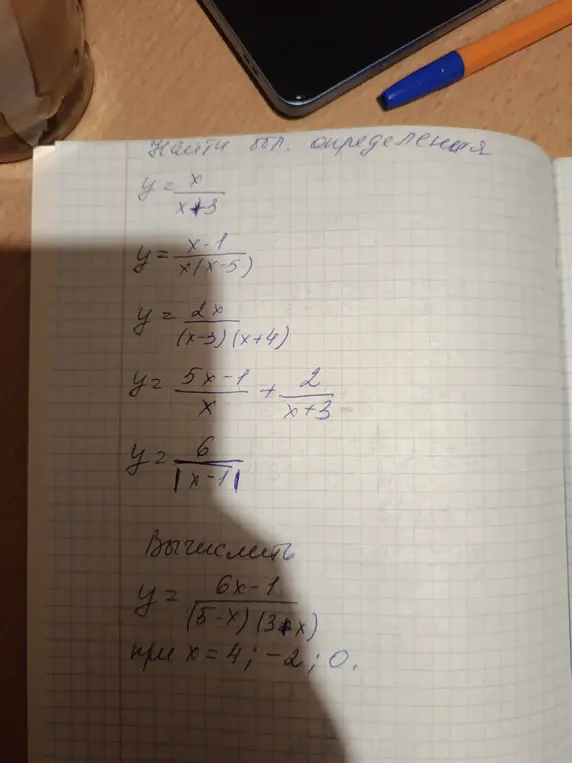 Найти обл. определения
y = x/(x+3)
y = (x-1)/(x(x-5))
y = 2x/((x-3)(x+4))
y = (5x-1)/x + 2/(x+3)
y = 6/|x-1|
Вычислить
y = (6x-1)/((5-x)(3+x))
при x = 4; -2; 0.